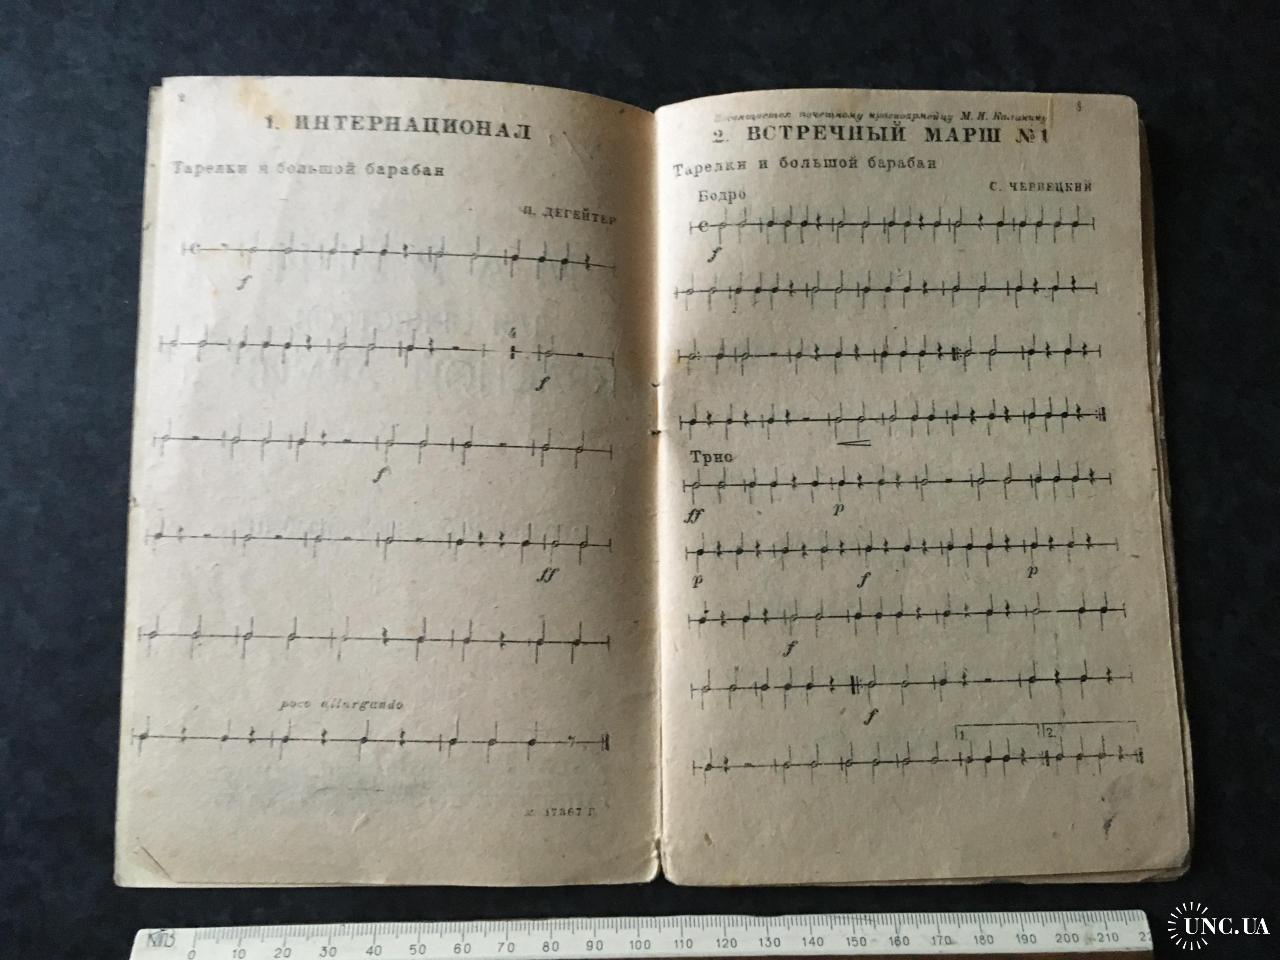 2
1. ИНТЕРНАЦИОНАЛ
Тарелки и большой барабан
П. ДЕГЕЙТЕР
f
4
f
f
ff
poco allargando
М. 17367 Г.
3
Посвящается почетному красноармейцу М. И. Калинину
2. ВСТРЕЧНЫЙ МАРШ №1
Тарелки и большой барабан
С. ЧЕРНЕЦКИЙ
Бодро
f
Трио
ff p
p f p
f
f
1. 2.
0 10 20 30 40 50 60 70 80 90 100 110 120 130 140 150 160 170 180 190 200 210
UNC.UA